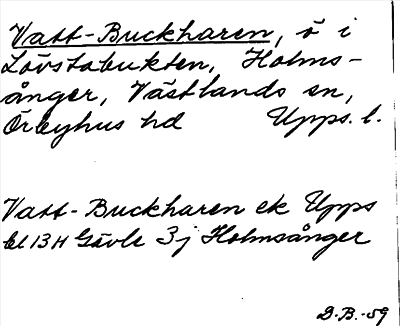 Vatt-Buckharen, ö i
Lövstabukten, Holms-
ånger, Västlands sn,
Örbyhus hd Upps. l.
Vatt-Buckharen ek Upps
bl 13H Gävle 3j Holmsånger
D.B.-59